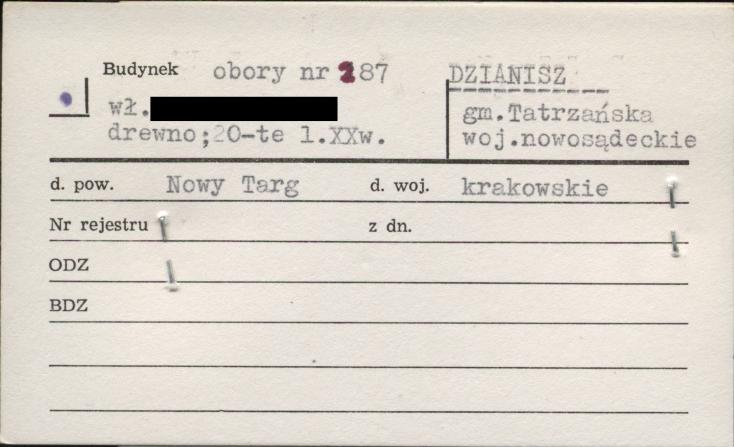 Budynek obory nr 287
wł.
drewno;20-te l.XXw.
DZIANISZ
gm.Tatrzańska
woj.nowosądeckie
d. pow. Nowy Targ d. woj. krakowskie
Nr rejestru z dn.
ODZ
BDZ